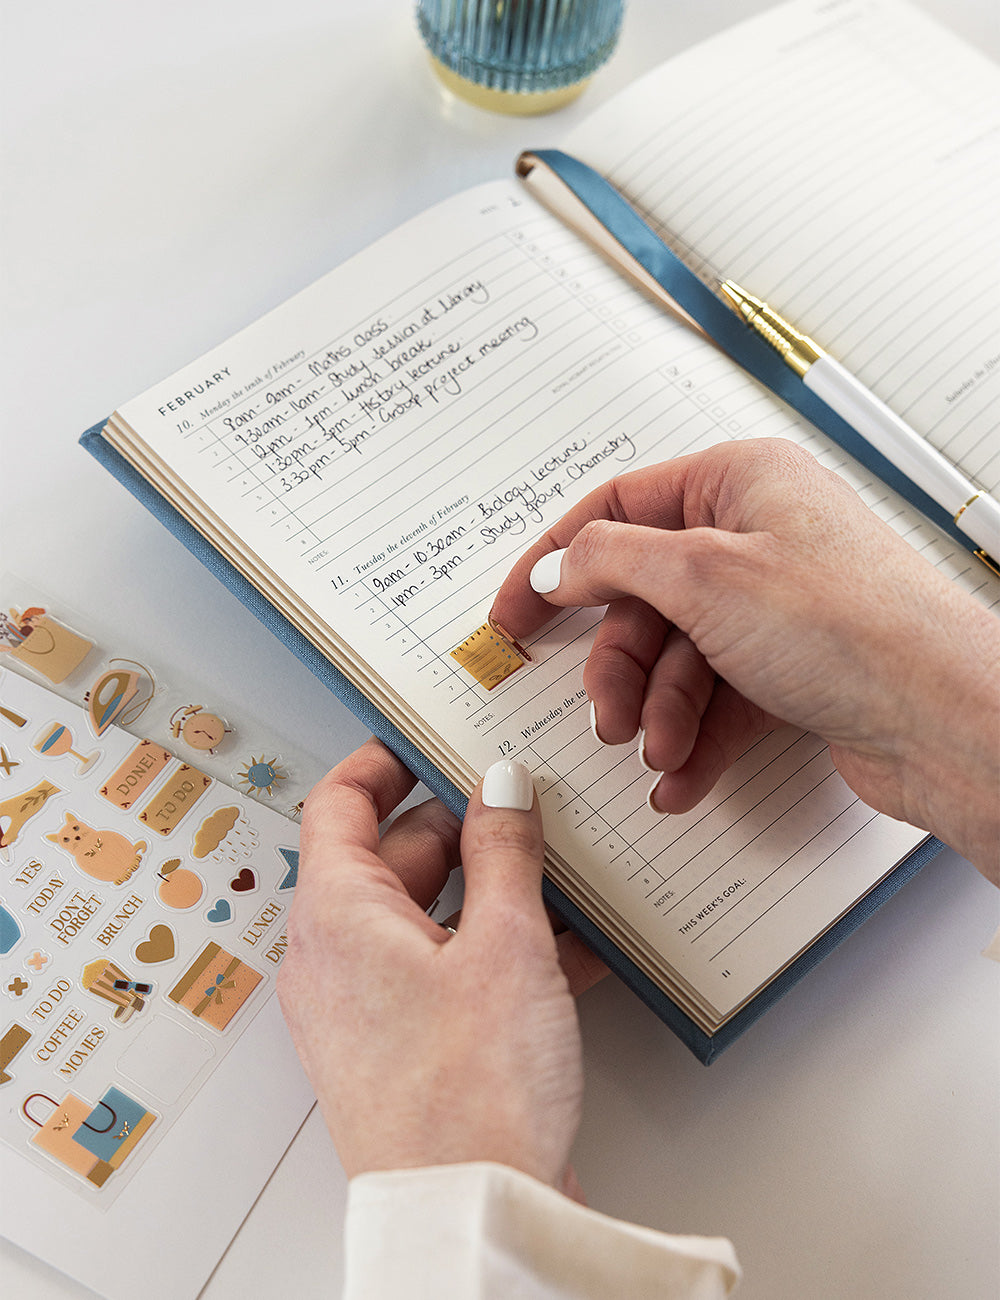 FEBRUARY
10. Monday the tenth of February
1 8am - 9am - Maths class
2 9:30am - 11am - Study session at Library
3 12pm - 1pm - lunch break
4 1:30pm - 3pm - History lecture
5 3:30pm - 5pm - Group project meeting
6
7
8
NOTES:
11. Tuesday the eleventh of February
1 9am - 10:30am - Biology lecture
2 1pm - 3pm - Study group - Chemistry
3
4
5
6
7
8
NOTES:
12. Wednesday the tw
1
2
3
4
5
6
7
8
NOTES:
THIS WEEK'S GOAL:
11
Saturday the
DONE!
TO DO
YES
TODAY
DON'T
FORGET
BRUNCH
LUNCH
TO DO
COFFEE
MOVIES